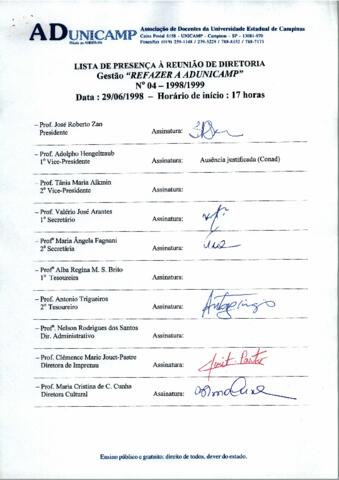 ADUNICAMP
Associação de Docentes da Universidade Estadual de Campinas
Caixa Postal 6158 - UNICAMP - Campinas - SP - 13081-970
LISTA DE PRESENÇA À REUNIÃO DE DIRETORIA
Gestão "REFAZER A ADUNICAMP"
Nº 04 – 1998/1999
Data : 29/06/1998 – Horário de início : 17 horas
– Prof. José Roberto Zan
Presidente Assinatura:
– Prof. Adolpho Hengeltraub
1º Vice-Presidente Assinatura: Ausência justificada (Conad)
– Prof. Tânia Maria Alkmin
2º Vice-Presidente Assinatura:
– Prof. Valério José Arantes
1º Secretário Assinatura:
– Profª Maria Ângela Fagnani
2ª Secretária Assinatura:
– Profª Alba Regina M. S. Brito
1ª Tesoureira Assinatura:
– Prof. Antonio Trigueiros
2º Tesoureiro Assinatura:
– Profº. Nelson Rodrigues dos Santos
Dir. Administrativo Assinatura:
– Prof. Clémence Marie Jouet-Pastre
Diretora de Imprensa Assinatura: Jouet Pastre
– Prof. Maria Cristina de C. Cunha
Diretora Cultural Assinatura:
Ensino público e gratuito: direito de todos, dever do estado.